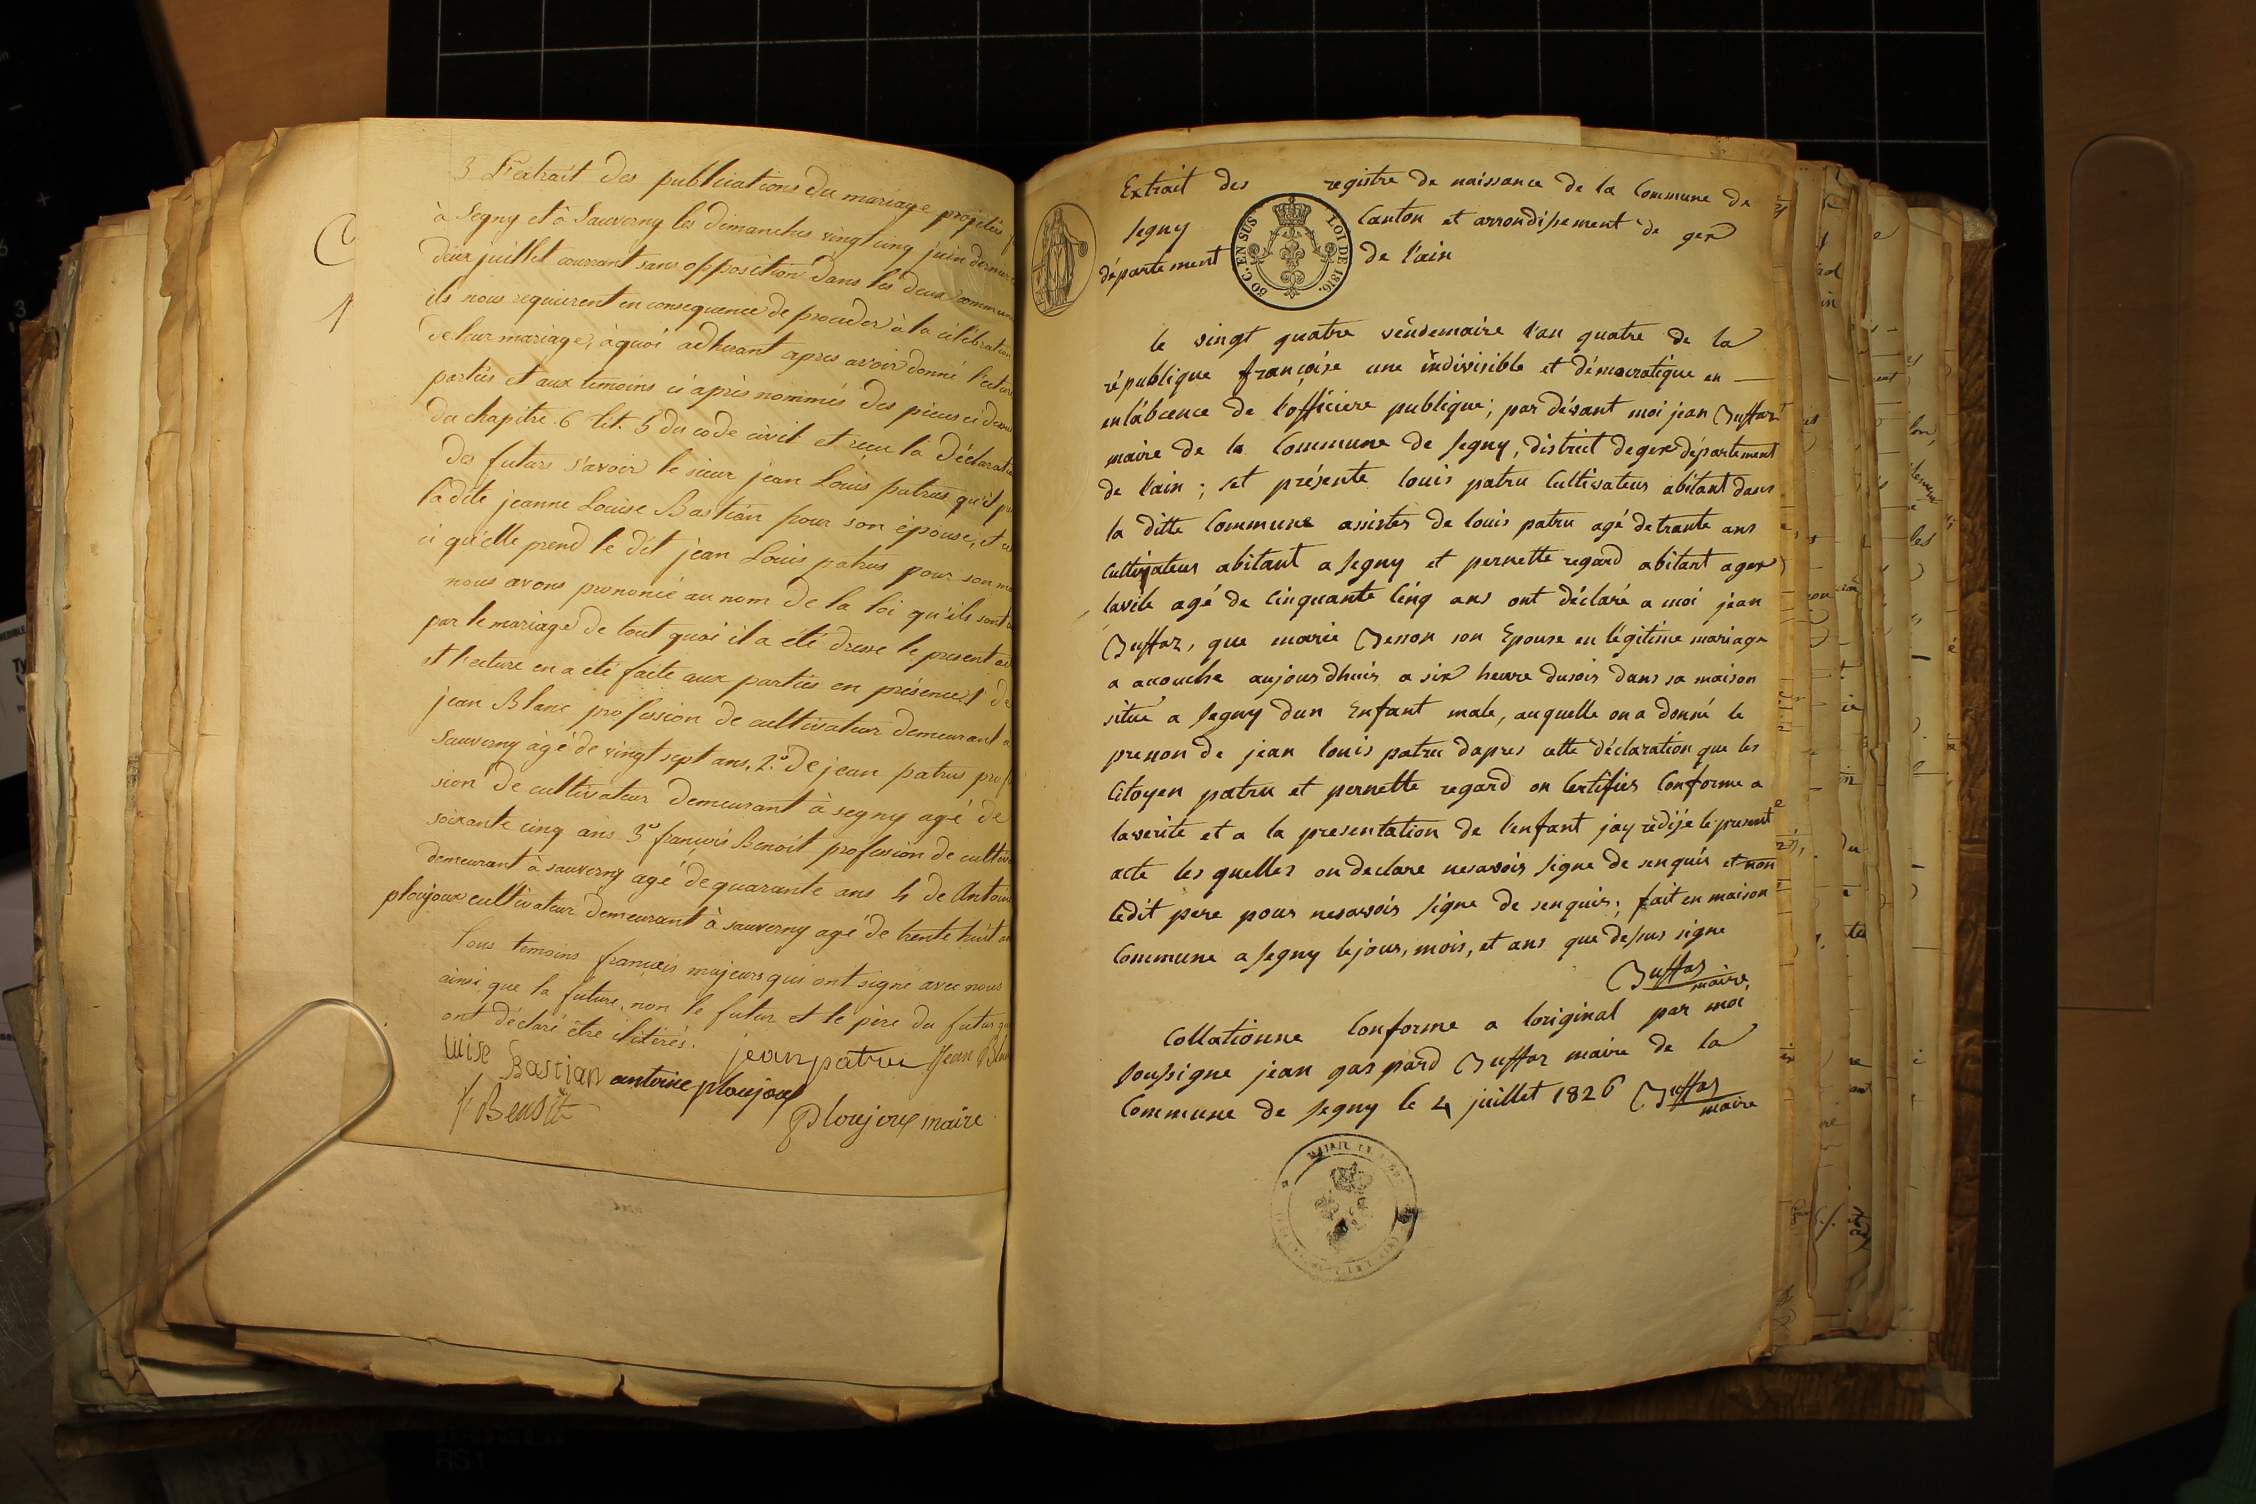 3 L'extrait des publications du mariage projettés
à Segny et à Sauverny les dimanches vingt cinq juin dernier
deux juillet courrant sans opposition dans les deux commun
ils nous requierent en consequence de proceder à la célébration
de leur mariage, àquoi adherant apres avoir donné lecture
parties et aux témoins ci après nommés des pieces ci dessus
du chapitre 6 tit. 5 du code civil et recu la déclarati
des futurs s'avoir le sieur jean Louis patrus qu'il
ladite jeanne Louise Bastian pour son épouse, et
ci qu'elle prend le dit jean Louis patrus pour son ma
nous avons prononcé au nom de la loi qu'ils sont
par le mariage de tout quoi il a été dressé le present
et lecture en a été faite aux parties en présence 1 de
jean Blanc profession de cultivateur demeurant a
Sauverny âgé de vingt sept ans. 2.° de jean patrus prof
sion de cultivateur demeurant à segny agé de
soixante cinq ans 3° françois Benoit profession de cultiv
demeurant à sauverny agé de quarante ans 4 de Antoin
ploujoux cultivateur demeurant à sauverny agé de trente huit
Tous temoins francais majeurs qui ont signé avec nous
ainsi que la future, non le futur et le père du futur
ont déclaré être ilitérés.
Luise Bastian jean patru Jean Bla
antoine ploujoux
f Benoit
Ploujoux maire
Extrait des registre de naissance de la Commune de
Segny Canton et arrondissement de gex
département de l'ain
50 C. EN SUS LOI DE 1816.
le vingt quatre véndemaire l'an quatre de la
république françoise une indivisible et démocratique en —
enlâbcence de l'officiere publique; par dévant moi jean Buffaz
maire de la Commune de Segny, district de gex département
de l'ain; set présente louis patru Cultivateur abitant dans
la ditte Commune asistes de louis patru agé de trante ans
Cultivateur abitant a Segny et pernette regard abitant a gex
lavile agé de Cinquante Cinq ans ont déclaré a moi jean
Buffaz, que marie Besson son Epouse en légitime mariage
a acouche aujourdhuis a six heure dusois dans sa maison
situé a Segny dun Enfant male, auquelle on a donné le
prenon de jean louis patru dapres cette déclaration que les
Citoyen patru et pernette regard on Certifies Conforme a
laverite et a la presentation de l'enfant jay rédije le présent
acte les quelles on declare nesavois signe de senquis et non
ledit pere pour nesavois signe de senquis; fait en maison
Commune a Segny le jour, mois, et ans que desus signe
Buffaz
maire,
Collationne Conforme a loriginal par moi
soussigne jean gaspard Buffaz maire de la
Commune de Segny le 4 juillet 1826 Buffaz
maire